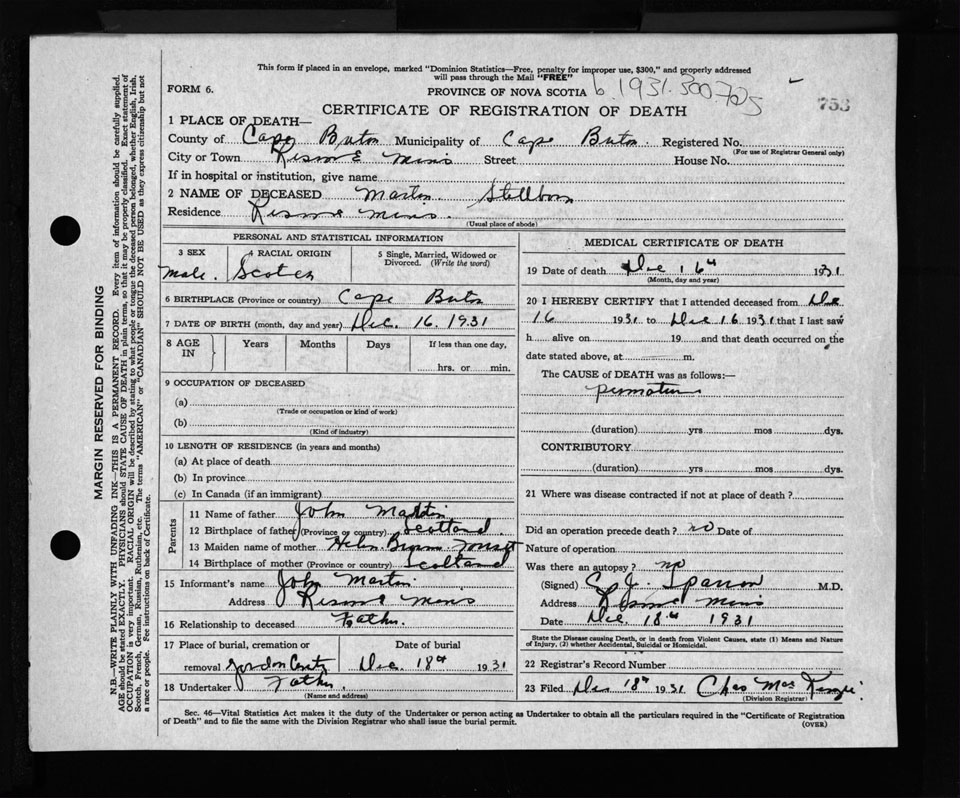 This form if placed in an envelope, marked "Dominion Statistics—Free, penalty for improper use, $300," and properly addressed
will pass through the Mail "FREE"
FORM 6.
PROVINCE OF NOVA SCOTIA b. 1931.300725
753
CERTIFICATE OF REGISTRATION OF DEATH
1 PLACE OF DEATH—
County of Cape Breton Municipality of Cape Breton Registered No.
(For use of Registrar General only)
City or Town Reserve Mines Street House No.
If in hospital or institution, give name
2 NAME OF DECEASED Martin Stillborn
Residence Reserve Mines.
(Usual place of abode)
PERSONAL AND STATISTICAL INFORMATION
3 SEX
Male.
4 RACIAL ORIGIN
Scotch
5 Single, Married, Widowed or
Divorced. (Write the word)
6 BIRTHPLACE (Province or country) Cape Breton
7 DATE OF BIRTH (month, day and year) Dec. 16. 1931
8 AGE
IN
Years
Months
Days
If less than one day,
hrs. or min.
9 OCCUPATION OF DECEASED
(a)
(Trade or occupation or kind of work)
(b)
(Kind of industry)
10 LENGTH OF RESIDENCE (in years and months)
(a) At place of death
(b) In province
(c) In Canada (if an immigrant)
Parents
11 Name of father John Martin
12 Birthplace of father (Province or country) Scotland
13 Maiden name of mother Helen
14 Birthplace of mother (Province or country) Scotland
15 Informant's name John Martin
Address Reserve Mines
16 Relationship to deceased Father.
17 Place of burial, cremation or
removal
Date of burial
Dec 18th 1931
18 Undertaker Father.
(Name and address)
MEDICAL CERTIFICATE OF DEATH
19 Date of death Dec 16th 1931
(Month, day and year)
20 I HEREBY CERTIFY that I attended deceased from Dec
16 1931 to Dec 16 1931 that I last saw
h alive on 19 and that death occurred on the
date stated above, at m.
The CAUSE of DEATH was as follows:—
premature
(duration) yrs mos dys.
CONTRIBUTORY
(duration) yrs mos dys.
21 Where was disease contracted if not at place of death?
Did an operation precede death? no Date of
Nature of operation
Was there an autopsy? no
(Signed) M.D.
Address Reserve Mines
Date Dec 18th 1931
State the Disease causing Death, or in death from Violent Causes, state (1) Means and Nature
of Injury, (2) whether Accidental, Suicidal or Homicidal.
22 Registrar's Record Number
23 Filed Dec 18th 1931 Chas MacKenzie
(Division Registrar)
Sec. 46—Vital Statistics Act makes it the duty of the Undertaker or person acting as Undertaker to obtain all the particulars required in the "Certificate of Registration
of Death" and to file the same with the Division Registrar who shall issue the burial permit.
(OVER)
MARGIN RESERVED FOR BINDING
N.B.—WRITE PLAINLY WITH UNFADING INK—THIS IS A PERMANENT RECORD. Every item of information should be carefully supplied.
AGE should be stated EXACTLY. PHYSICIANS should STATE CAUSE OF DEATH in plain terms, so that it may be properly classified. Exact statement of
OCCUPATION is very important. RACIAL ORIGIN will be described by stating to what people or tongue the deceased person belonged, whether English, Irish,
Scotch, French, German, Russian, Ruthenian, etc. The terms "AMERICAN" or "CANADIAN" SHOULD NOT BE USED as they express citizenship but not
a race or people. See instructions on back of Certificate.